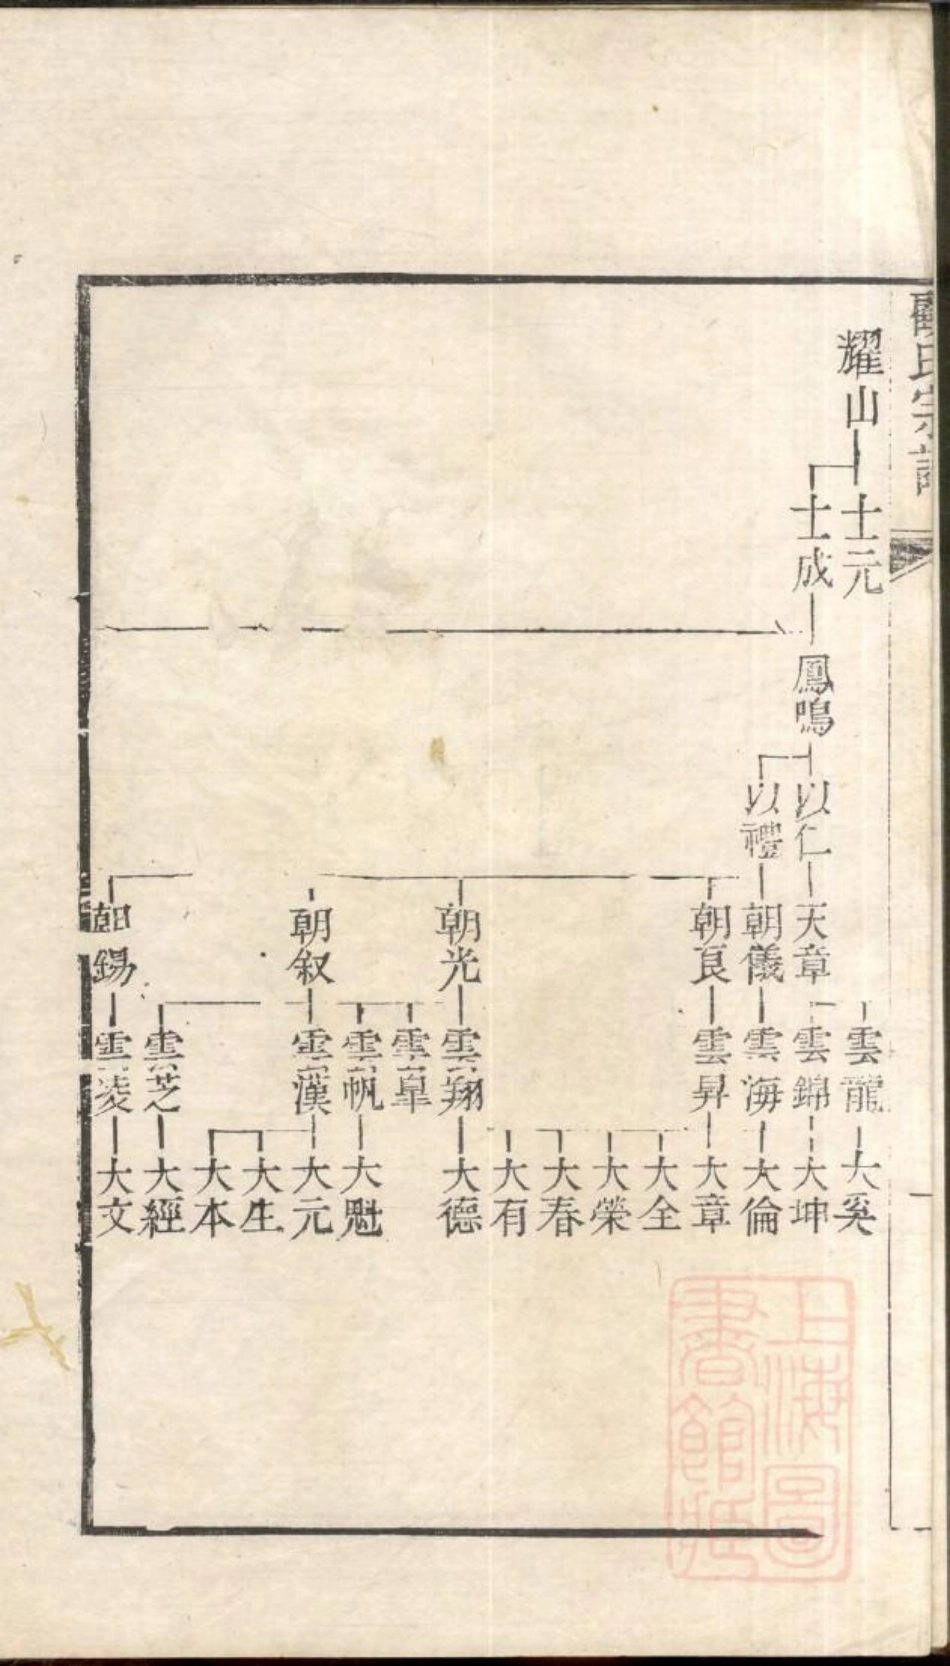 顧氏宗譜
耀山
士元
士成
鳳鳴
以仁
以禮
天章
朝儀
朝良
朝光
朝叙
朝錫
雲龍
雲錦
雲海
雲昇
雲翔
雲皐
雲帆
雲漢
雲芝
雲凌
大奚
大坤
大倫
大章
大全
大榮
大春
大有
大德
大魁
大元
大生
大本
大經
大文
上海圖
書館藏